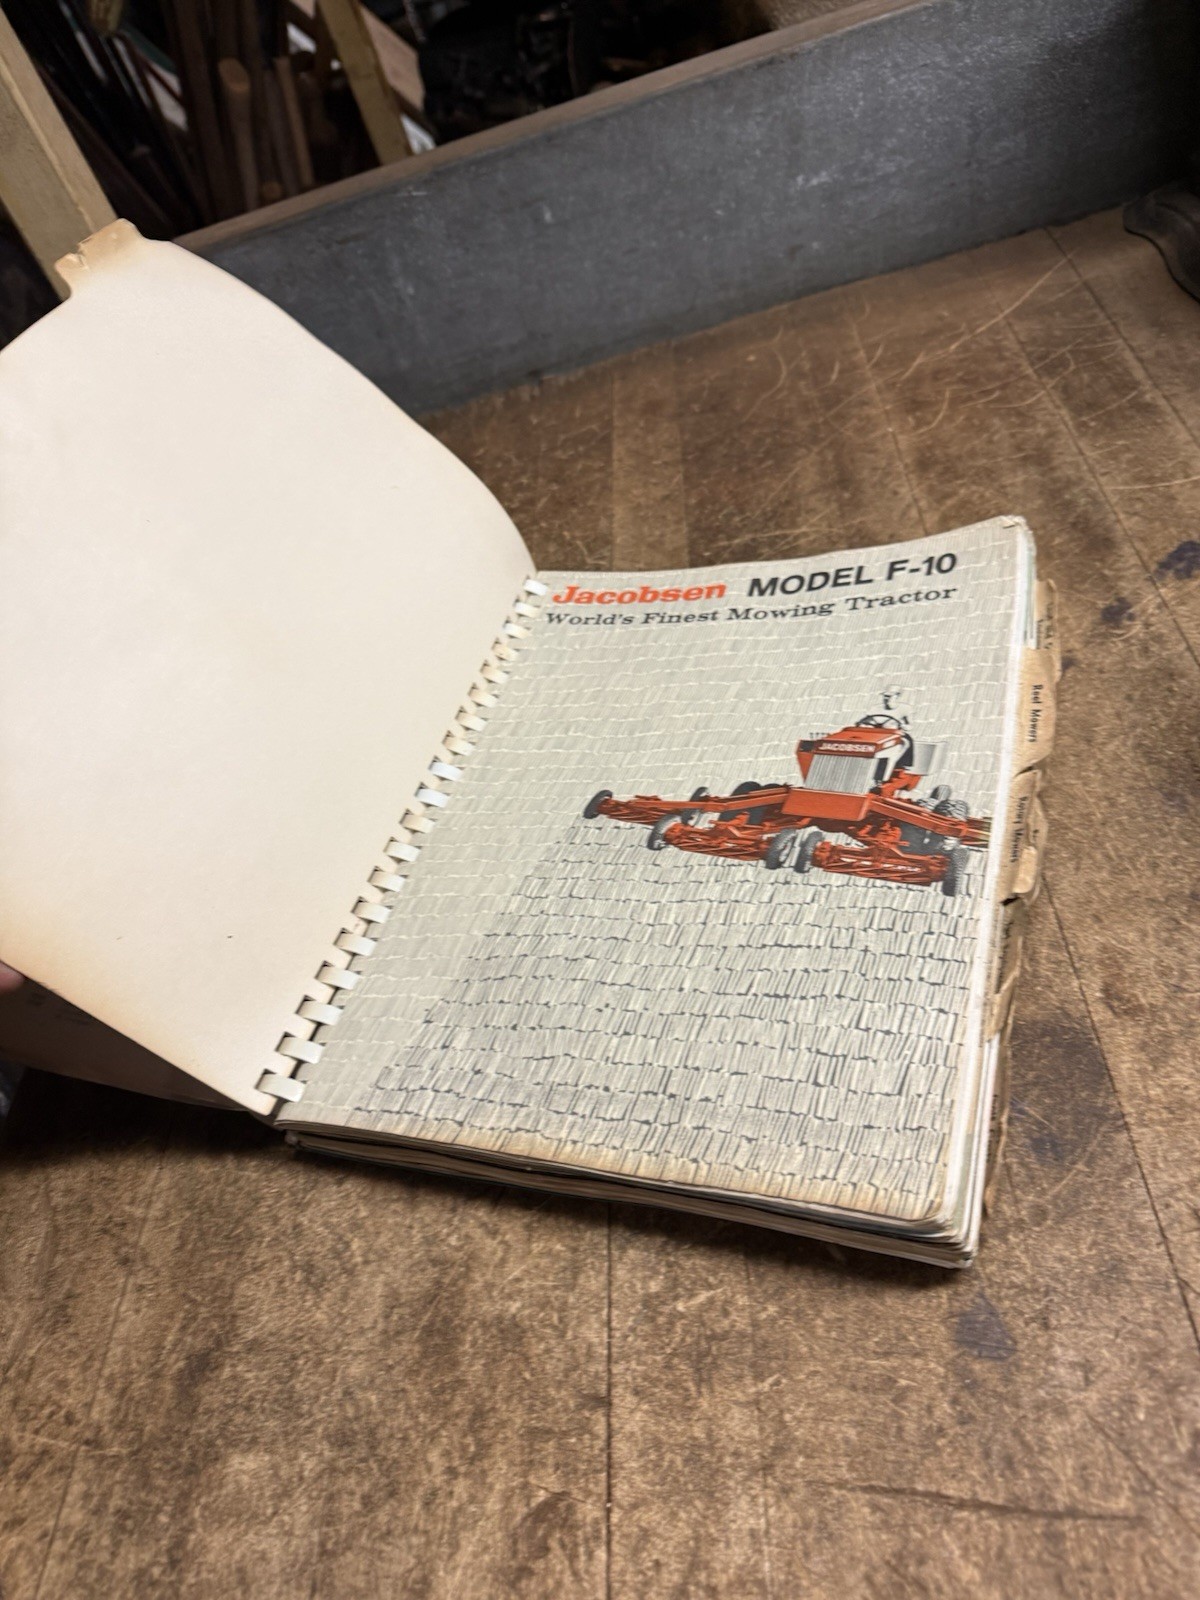 Jacobsen MODEL F-10
World's Finest Mowing Tractor
JACOBSEN
Reel Mowers
Rotary Mowers